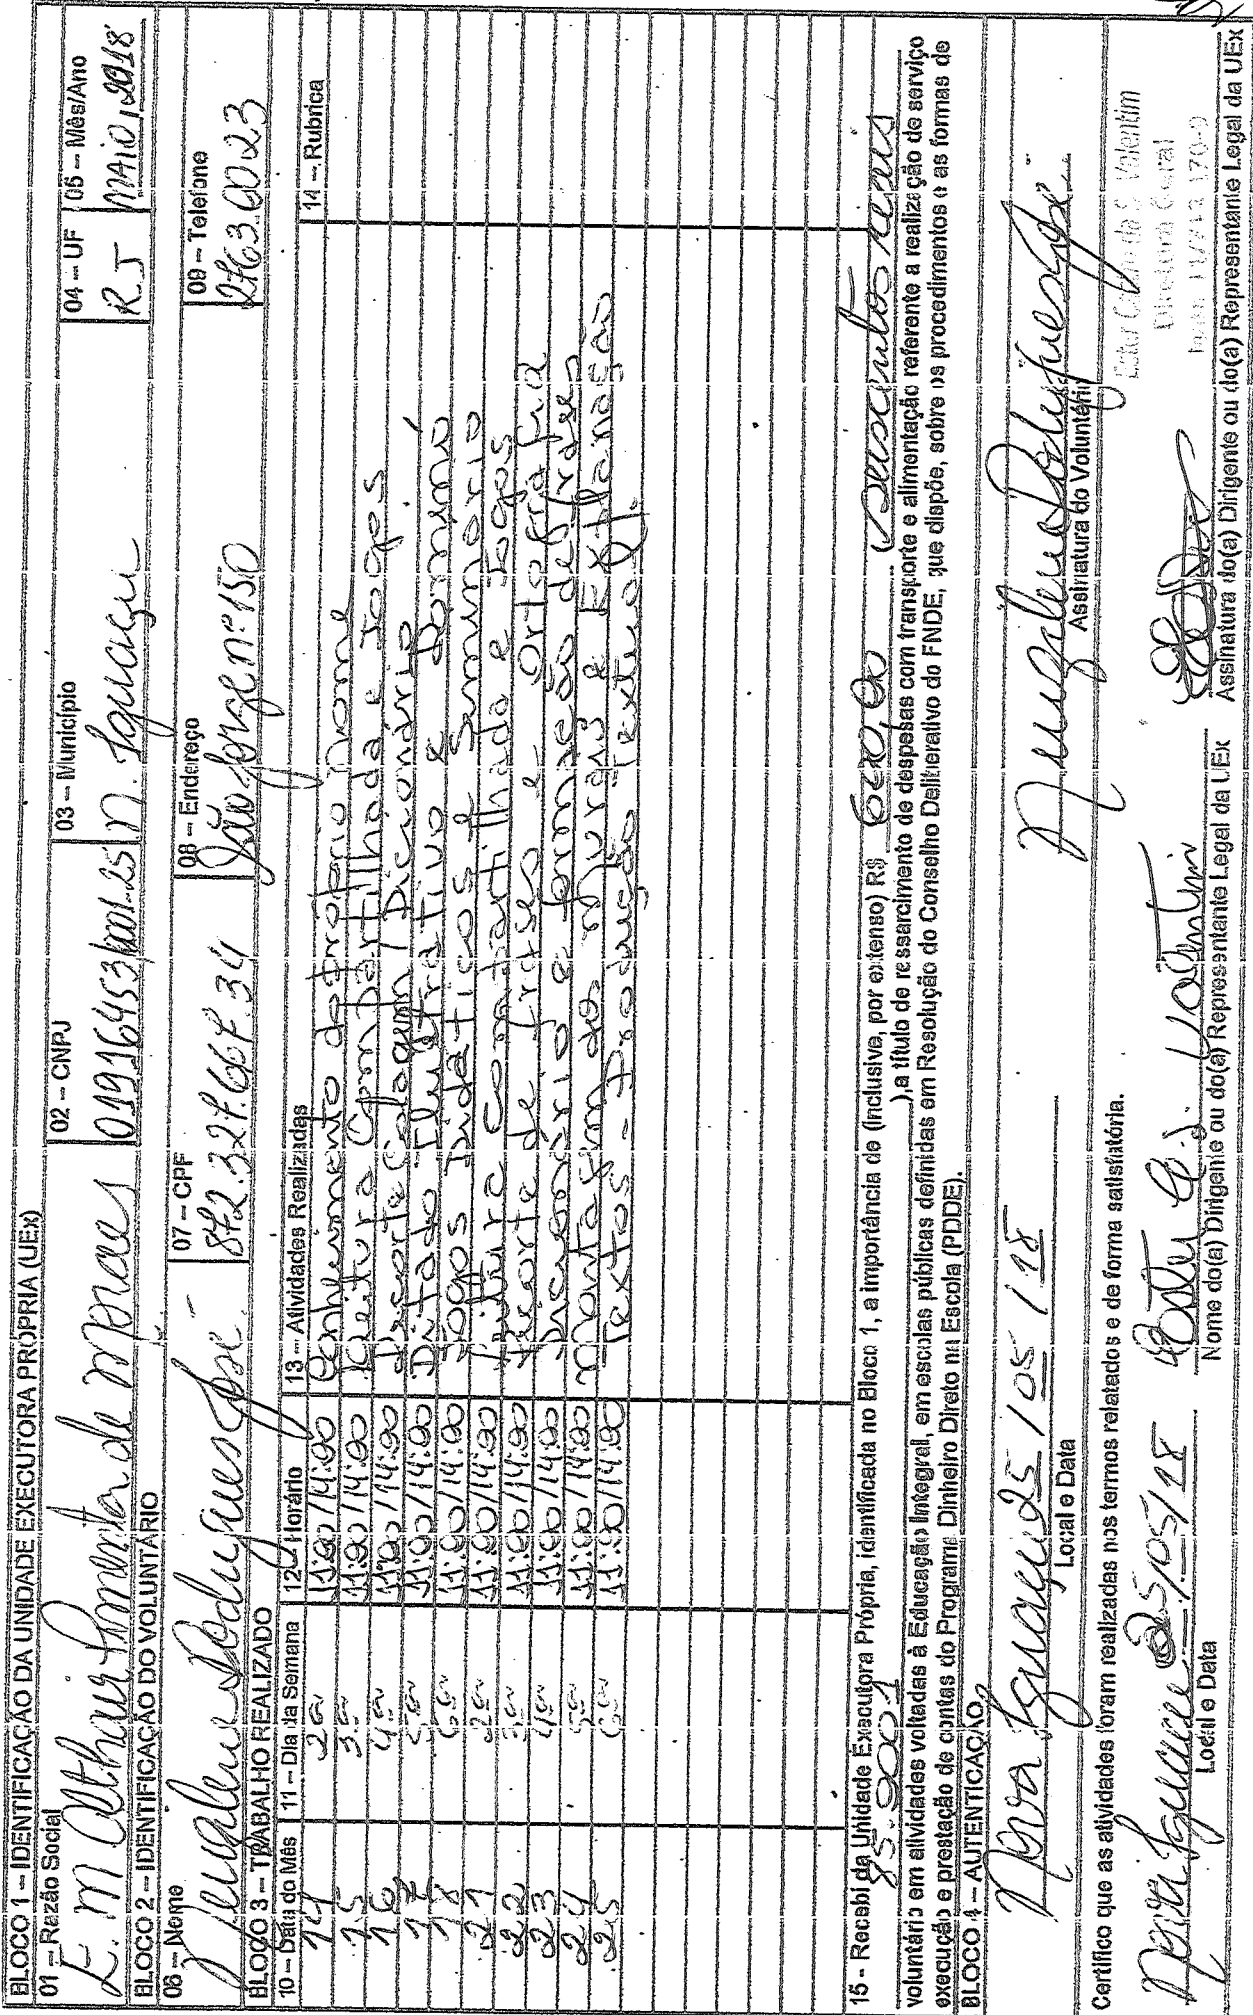 BLOCO 1 – IDENTIFICAÇÃO DA UNIDADE EXECUTORA PRÓPRIA (UEx)
01 – Razão Social 02 – CNPJ 03 – Município 04 – UF 05 – Mês/Ano
E. M Althair Pimenta de Moraes 01916453/0001-25 N. Iguaçu RJ MAIO, 2018
BLOCO 2 – IDENTIFICAÇÃO DO VOLUNTÁRIO
06 – Nome 07 – CPF 08 – Endereço 09 – Telefone
Rodrigues José 872.327.667.34 São Jorge nº 150 2763.0023
BLOCO 3 – TRABALHO REALIZADO
10 – Data do Mês 11 – Dia da Semana 12 – Horário 13 – Atividades Realizadas 14 – Rubrica
14 2ª 11:00/14:00 Conhecimento do próprio nome
15 3ª 11:00/14:00 Leitura Compartilhada e Jogos
16 4ª 11:00/14:00 Recorte Colagem / Dicionário
17 5ª 11:00/14:00 Ditado Ilustrativo e Dominó
18 6ª 11:00/14:00 Jogos Didáticos e Seminário
21 2ª 11:00/14:00 Leitura Compartilhada e Jogos
22 3ª 11:00/14:00 Recorte de frases e Ortografia
23 4ª 11:00/14:00 Dicionário e formação de frases
24 5ª 11:00/14:00 Montagem do Mural e Explanação
25 6ª 11:00/14:00 Textos - Produção Textual
15 – Recebi da Unidade Executora Própria, identificada no Bloco 1, a importância de (inclusive, por extenso) R$ 600,00 (seiscentos reais
), a título de ressarcimento de despesas com transporte e alimentação referente a realização de serviço
85.0001
voluntário em atividades voltadas à Educação Integral, em escolas públicas definidas em Resolução do Conselho Deliberativo do FNDE, que dispõe, sobre os procedimentos e as formas de
execução e prestação de contas do Programa Dinheiro Direto na Escola (PDDE).
BLOCO 4 – AUTENTICAÇÃO
Nova Iguaçu 25/05/18 Rodrigues José
Local e Data Assinatura do Voluntário
Certifico que as atividades foram realizadas nos termos relatados e de forma satisfatória.
Valentim
Diretora Geral
170-9
Nova Iguaçu 25/05/18 Ester C. S. Valentim
Local e Data Nome do(a) Dirigente ou do(a) Representante Legal da UEx Assinatura do(a) Dirigente ou do(a) Representante Legal da UEx